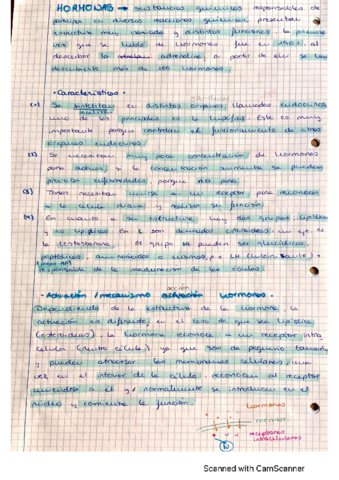 HORMONAS → sustancias químicas responsables de
participar en diversas reacciones químicas, presentan
estructura muy variada y distintas funciones. La primera
vez que se habló de hormonas fue en 1901 al
descubrir la adrenalina a partir de ahí se han
descubierto más de 100 hormonas.
- Características -
(1) Se sintetizan en distintos órganos llamados endocrinos
uno de los principales es la hipófisis. Este es muy
importante porque controlan el funcionamiento de otros
órganos endocrinos.
(2) Se necesitan muy poca concentración de hormonas
para actuar, si la concentración aumenta se pueden
provocar enfermedades, porque no para.
(3) Todas necesitan unirse a un receptor para reconocer
a la célula diana y realizar su función.
(4) En cuanto a su estructura hay dos grupos lipídicas
y no lipídicas. En L son derivados esteroideos, un eje. es
la testosterona. El grupo NL pueden ser glucídicas,
peptídicas, aminoácidos o
responsable de la maduración de los óvulos.
acción
- Activación / mecanismo activación hormonas -
Dependiendo de la estructura de la hormona, la
activación es diferente, en el caso de que sea lipídica
(esteroideos) la hormona reconoce a un receptor intra
celular (dentro célula) ya que son de pequeño tamaño
y pueden atravesar las membranas celulares, una
vez en el interior de la célula, reconocen al receptor
uniéndose a él y normalmente se introducen en el
núcleo y comienza la función.
hormonas
membr
receptores
intracelulares
N
Scanned with CamScanner